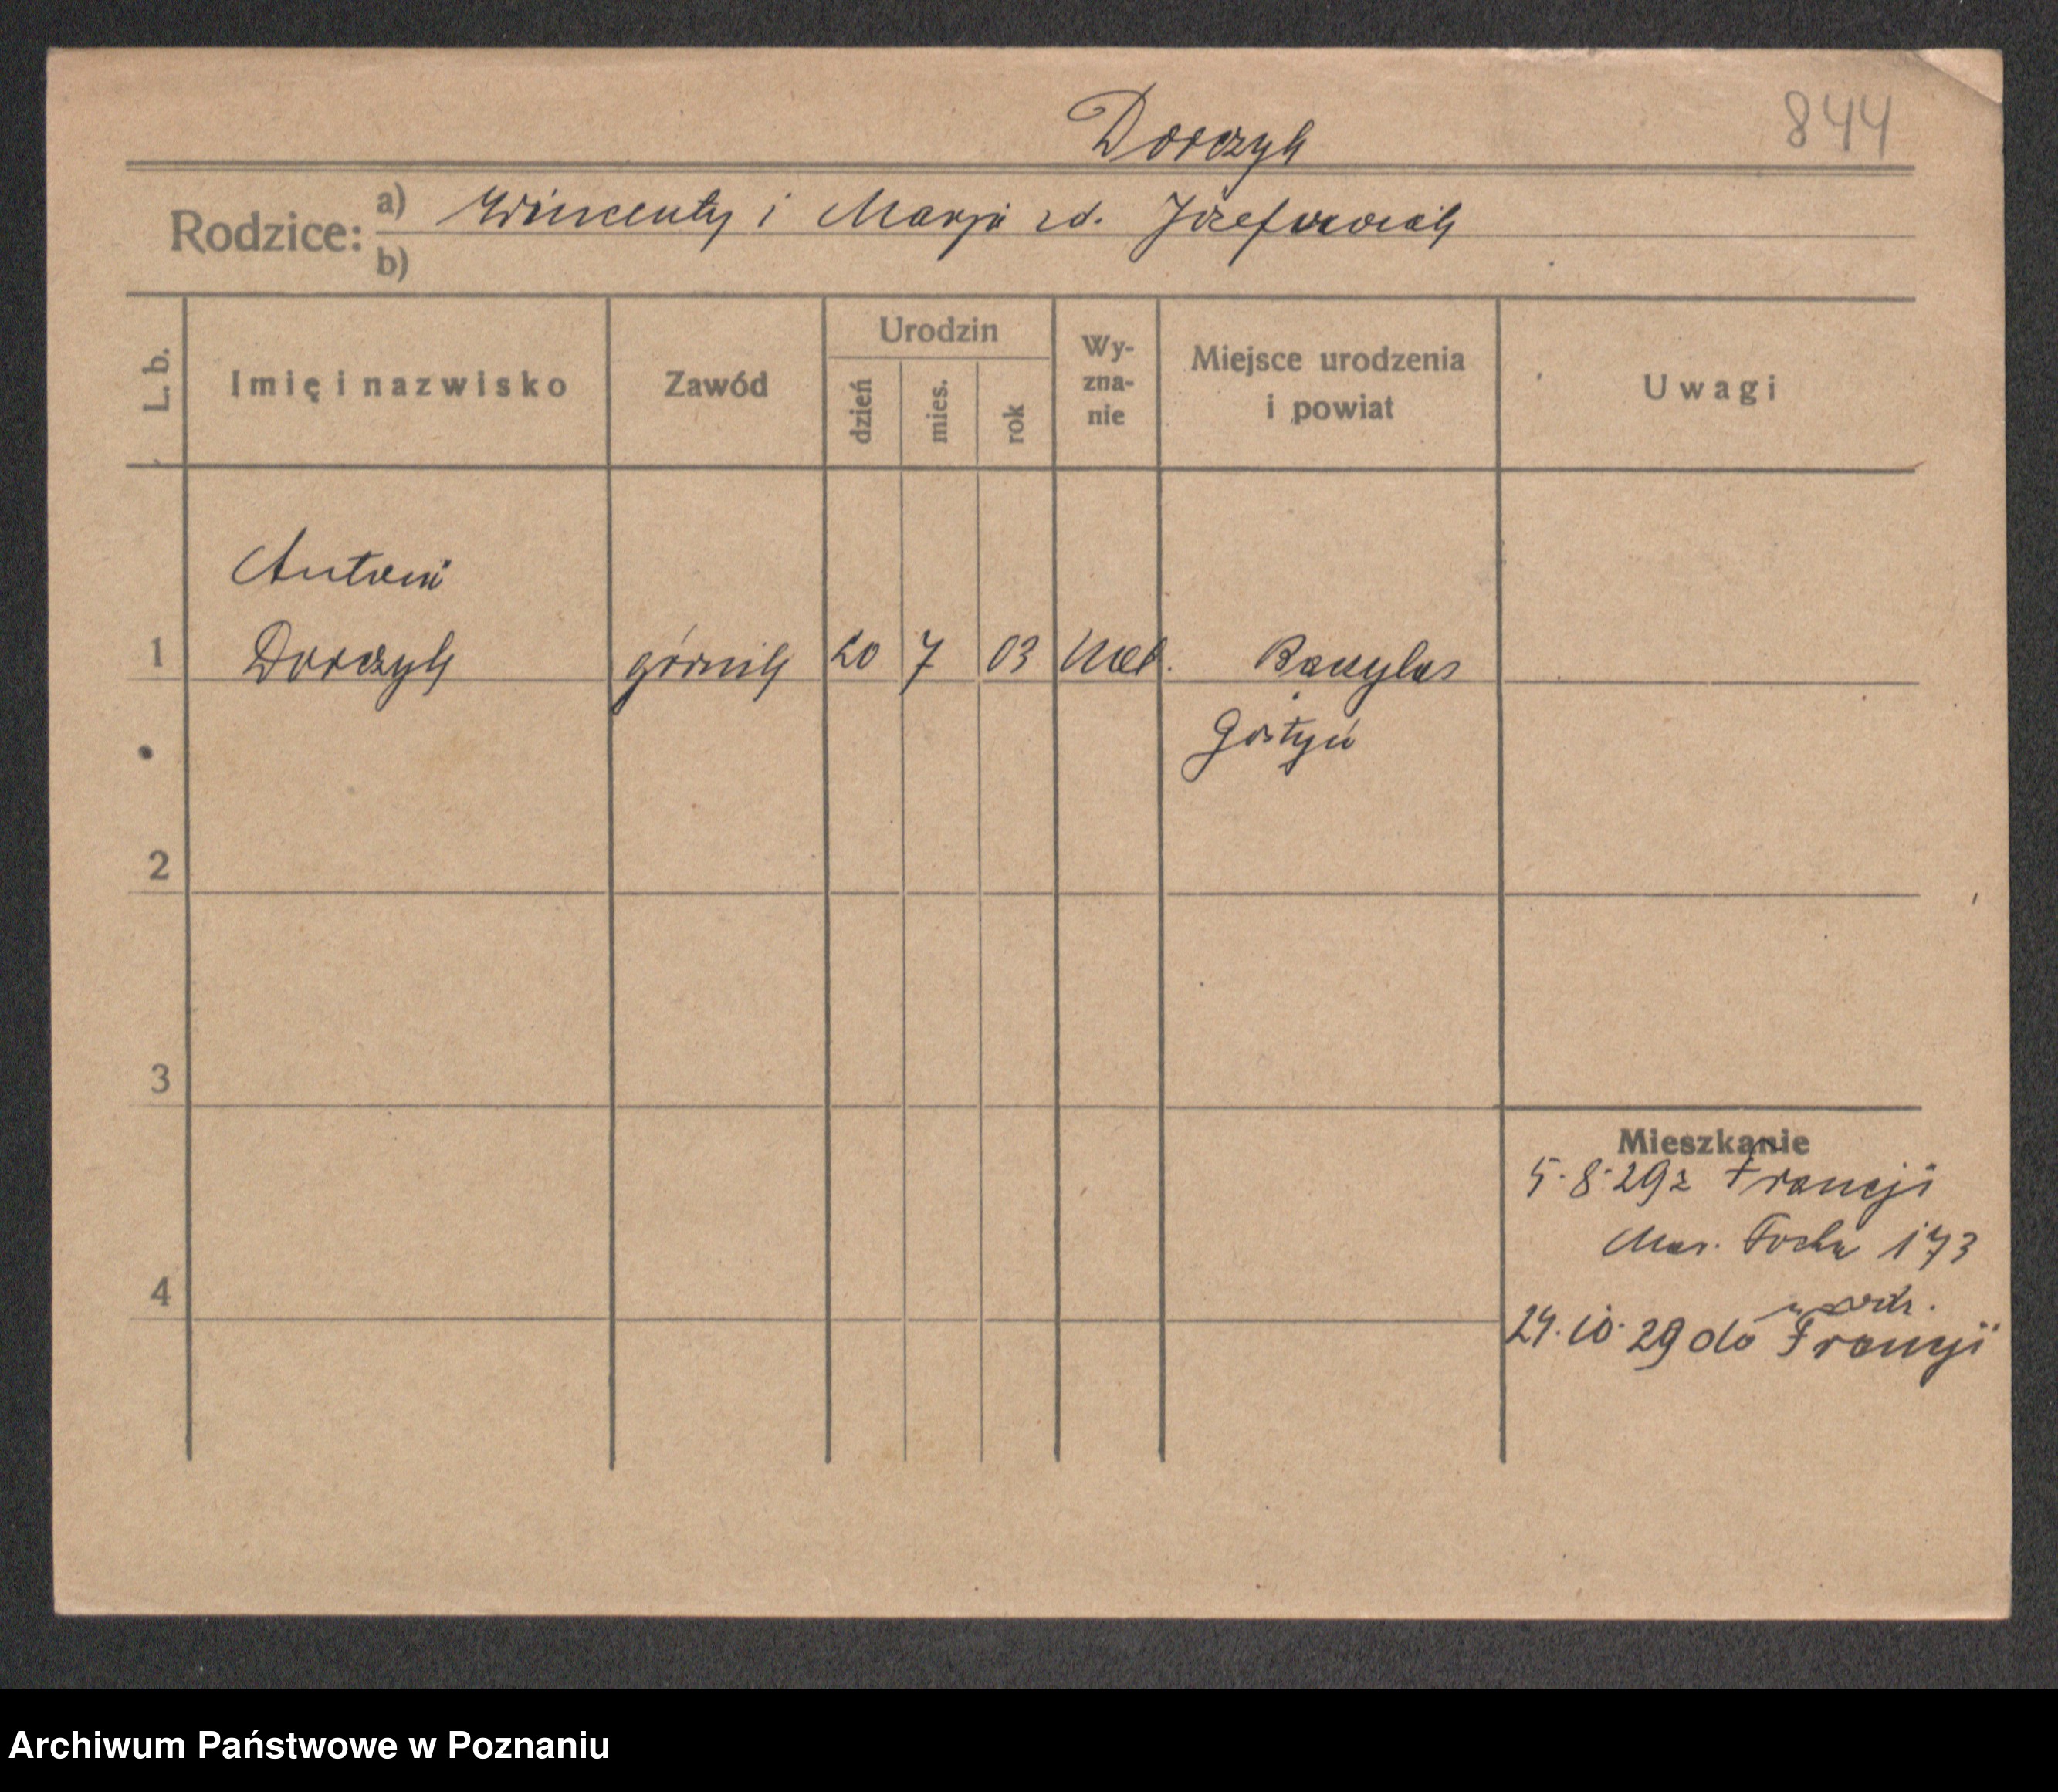 Dorczyk
844
Rodzice: a) Wincenty i Marja zd. Józefowiak
b)
L. b.
Imię i nazwisko
Zawód
Urodzin
dzień
mies.
rok
Wy-
zna-
nie
Miejsce urodzenia
i powiat
Uwagi
Antoni
1 Dorczyk górnik 20 7 03 kat.
Gostyń
2
3
Mieszkanie
5.8.29 z Francji
Mar. Focha 173
4
u rodz.
24.10.29 do Francji
Archiwum Państwowe w Poznaniu